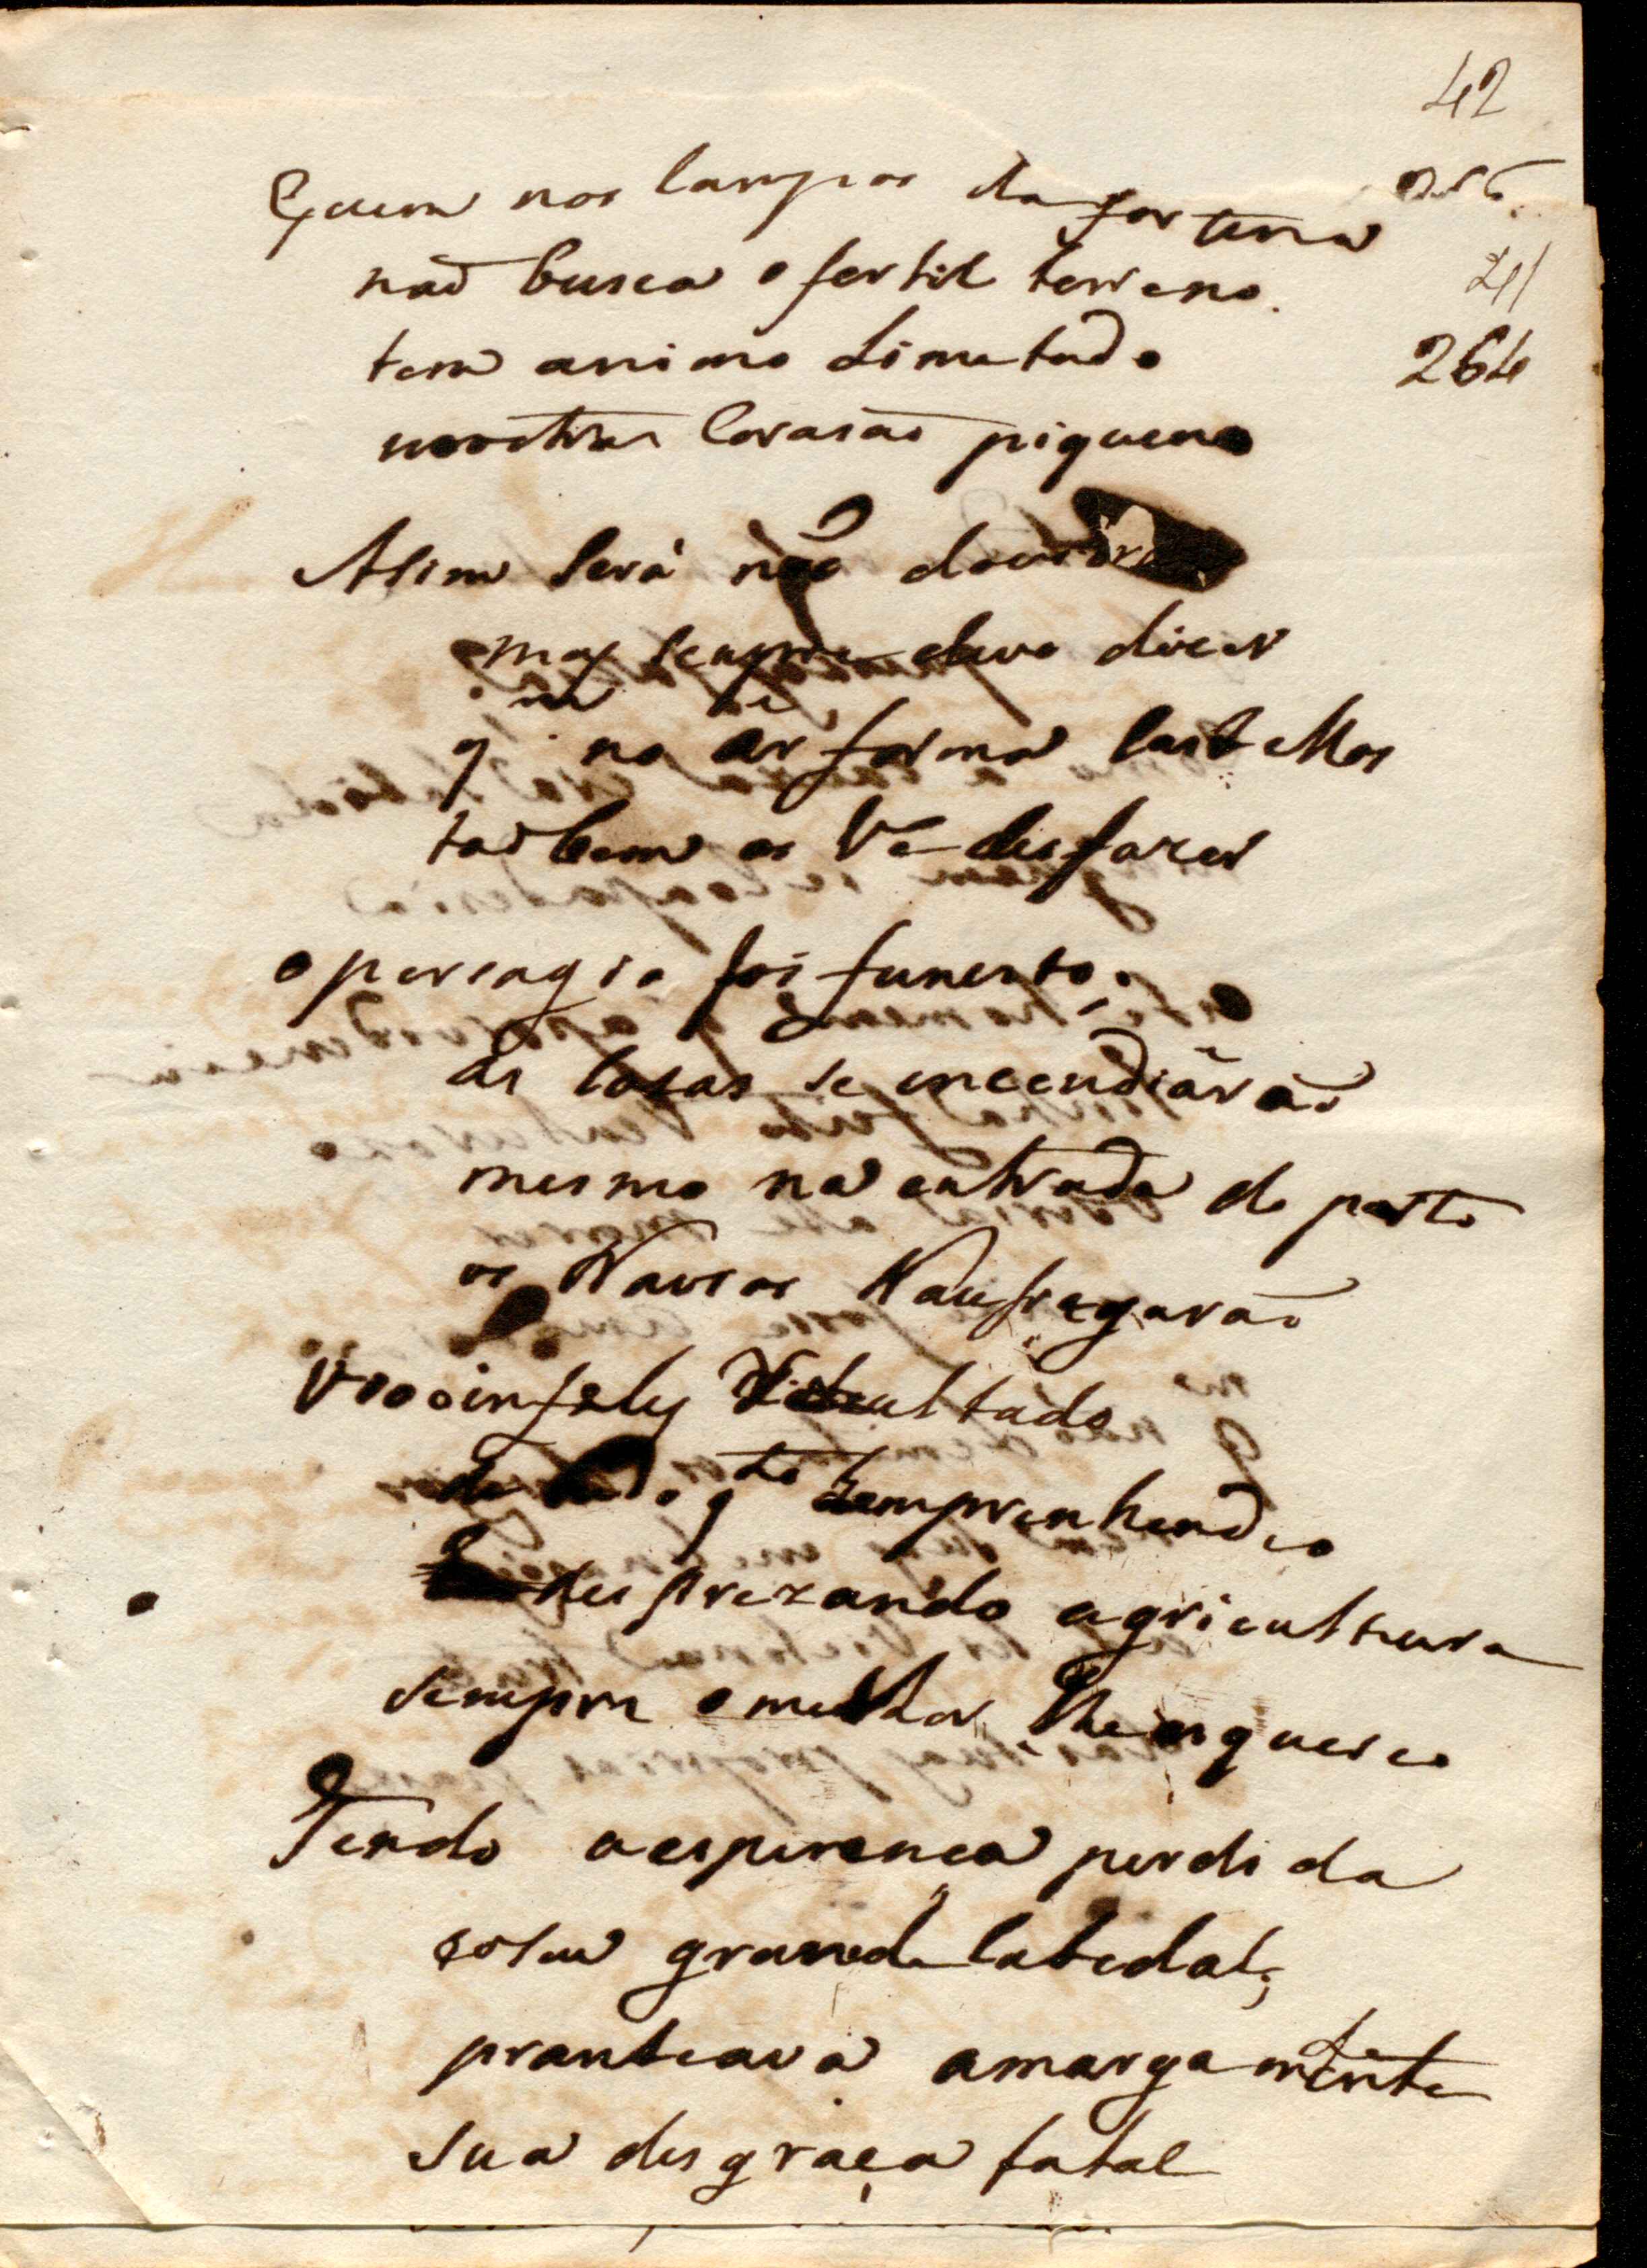 42
Quem nos campos da fortuna
naõ busca o fertil terreno.
41
tem animo Limetado
264
mostra Corasaõ piqueno
Asim será não
mas sempre devo dicer
q no ar forma Castellos
taõbem os Vê desfazer
o persagio foi funesto;
as Cosas se incendiáraõ
mesmo na entrada do porto
os Navios Naufragaraõ
Vio o infeliz Recultado
de tudo q.to Comprenhendeo
desprezando agricultura
sempre o melhor lhe esqueseo
Tendo a esperença perdida
e o seu grande Cabedal;
pranteava amargamente
sua desgraça fatal